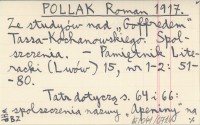 POLLAK Roman 1917.
Ze studyów nad „Goffredem"
Tassa-Kochanowskiego. Spol-
szczenia. – Pamiętnik Lite-
racki (Lwów) 15, nr 1-2: 51-
-80.
Tatr dotyczą s. 64 i 66:
spolszczenia nazwy Apeniny na
BZ